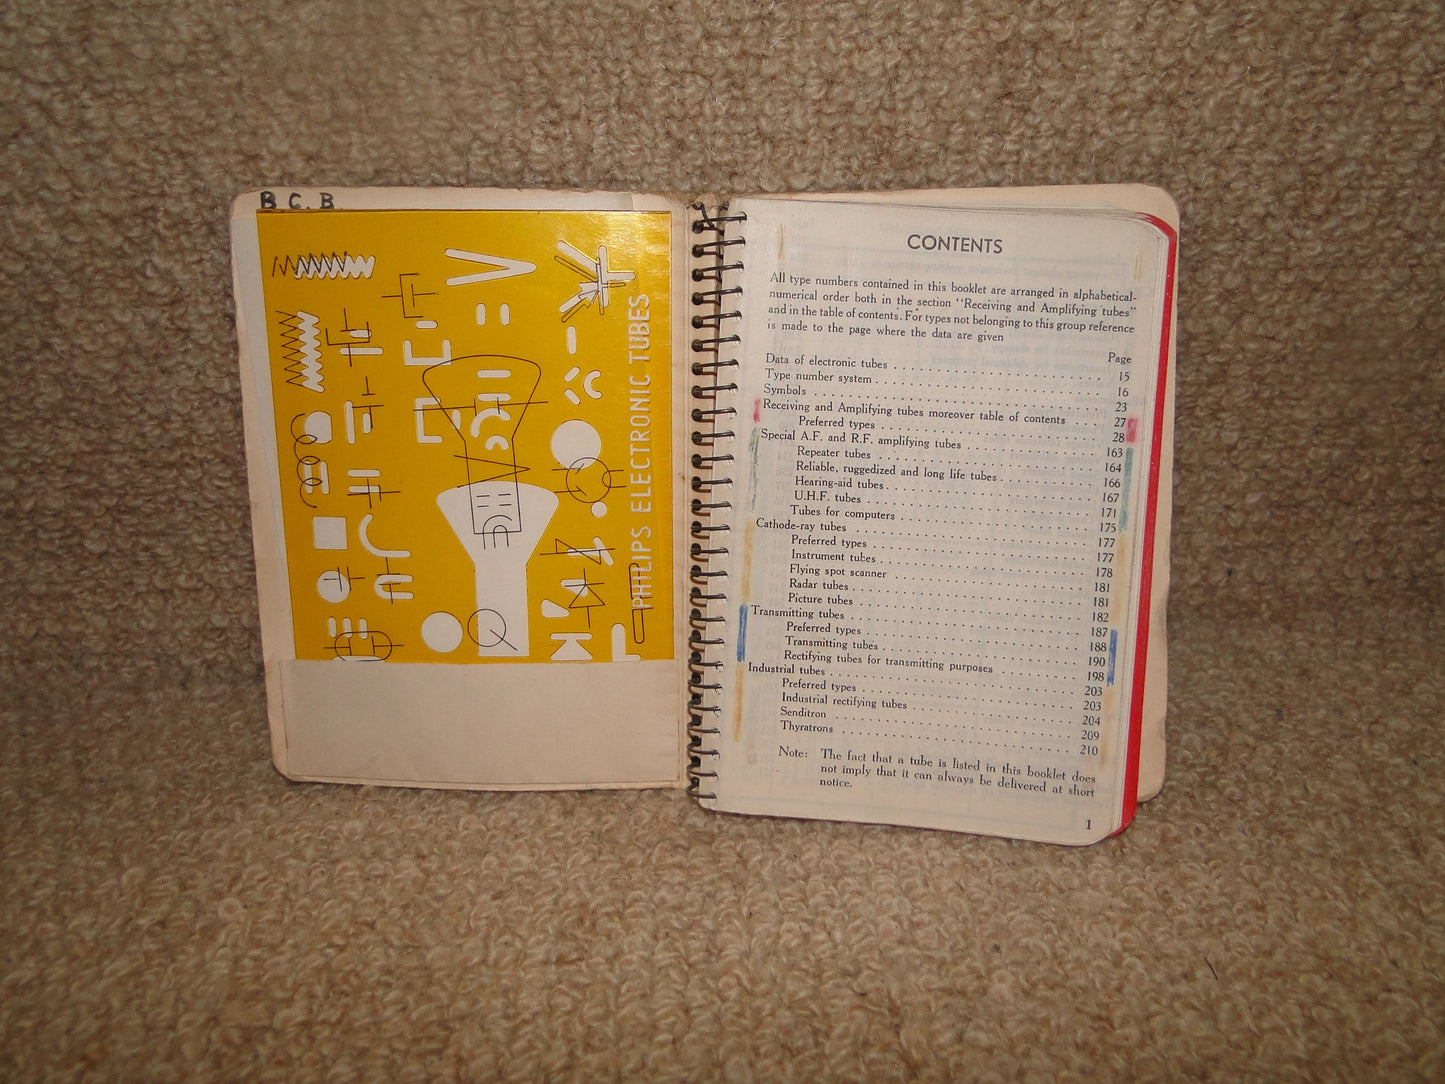 B. C. B.
PHILIPS ELECTRONIC TUBES
CONTENTS
All type numbers contained in this booklet are arranged in alphabetical-
numerical order both in the section "Receiving and Amplifying tubes"
and in the table of contents. For types not belonging to this group reference
is made to the page where the data are given
Page
Data of electronic tubes . . . . . . . . . . . . . . . . . . . . 15
Type number system . . . . . . . . . . . . . . . . . . . . 16
Symbols . . . . . . . . . . . . . . . . . . . . 23
Receiving and Amplifying tubes moreover table of contents . . . . 27
Preferred types . . . . . . . . . . . . . . . . . . . . 28
Special A.F. and R.F. amplifying tubes . . . . . . . . . . . . 163
Repeater tubes . . . . . . . . . . . . . . . . . . . . 164
Reliable, ruggedized and long life tubes . . . . . . . . . . 166
Hearing-aid tubes . . . . . . . . . . . . . . . . . . . . 167
U.H.F. tubes . . . . . . . . . . . . . . . . . . . . 171
Tubes for computers . . . . . . . . . . . . . . . . . . . . 175
Cathode-ray tubes . . . . . . . . . . . . . . . . . . . . 177
Preferred types . . . . . . . . . . . . . . . . . . . . 177
Instrument tubes . . . . . . . . . . . . . . . . . . . . 178
Flying spot scanner . . . . . . . . . . . . . . . . . . . . 181
Radar tubes . . . . . . . . . . . . . . . . . . . . 181
Picture tubes . . . . . . . . . . . . . . . . . . . . 182
Transmitting tubes . . . . . . . . . . . . . . . . . . . . 187
Preferred types . . . . . . . . . . . . . . . . . . . . 188
Transmitting tubes . . . . . . . . . . . . . . . . . . . . 190
Rectifying tubes for transmitting purposes . . . . . . . . . . 198
Industrial tubes . . . . . . . . . . . . . . . . . . . . 203
Preferred types . . . . . . . . . . . . . . . . . . . . 203
Industrial rectifying tubes . . . . . . . . . . . . . . . . 204
Senditron . . . . . . . . . . . . . . . . . . . . 209
Thyratrons . . . . . . . . . . . . . . . . . . . . 210
Note: The fact that a tube is listed in this booklet does
not imply that it can always be delivered at short
notice.
1